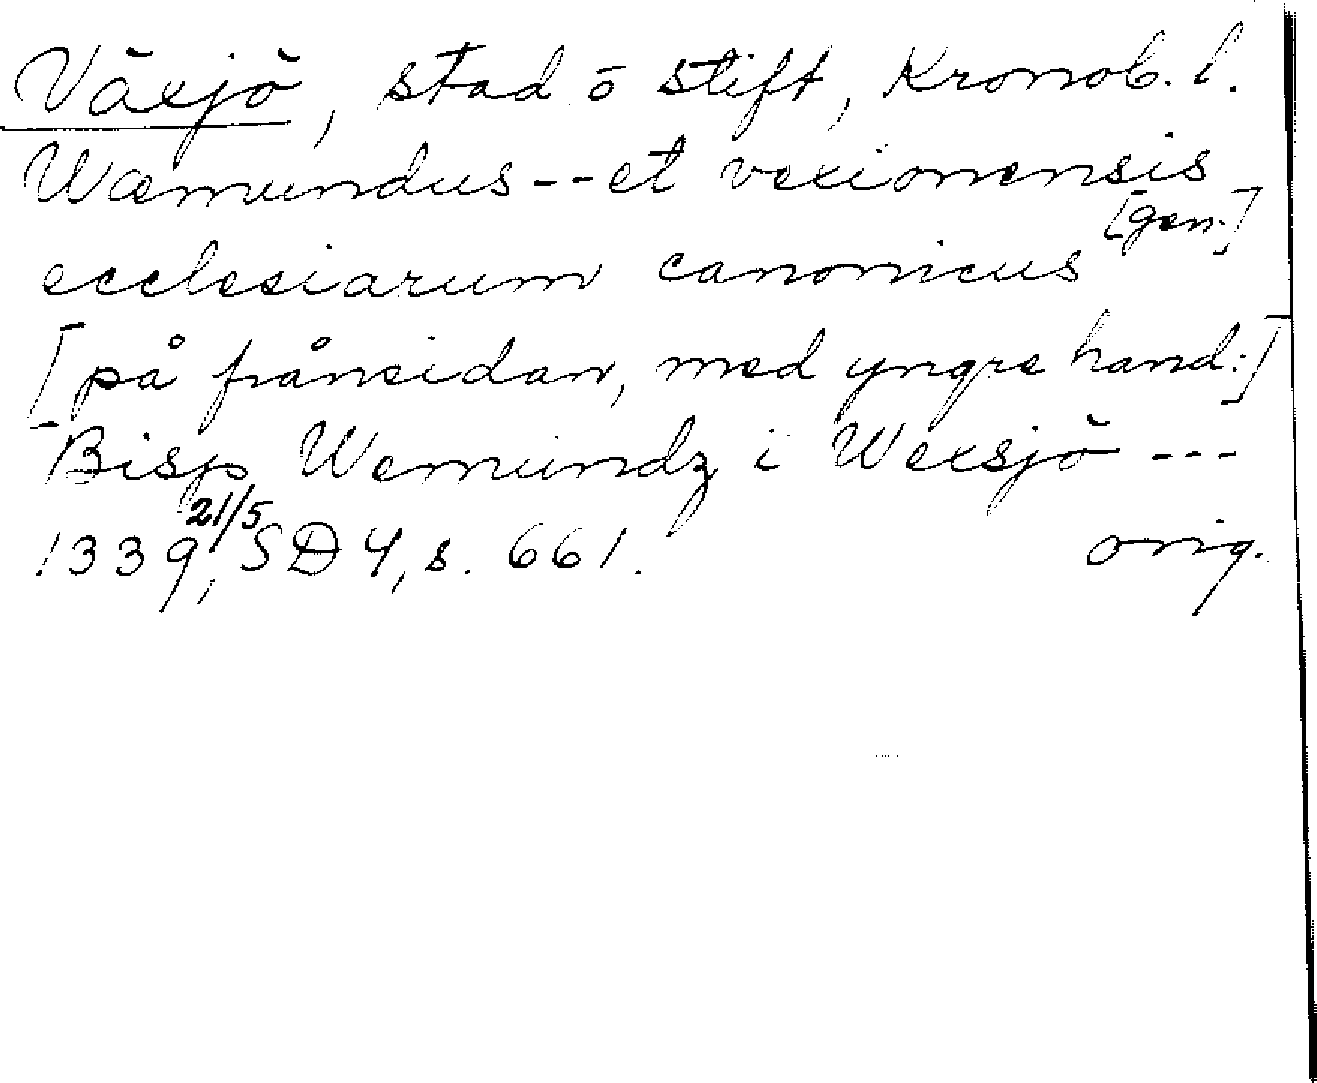 Växjö, stad o stift, Kronob. l.
Wæmundus -- et vexionensis
[gen.]
ecclesiarum canonicus
[på frånsidan, med yngre hand:]
Bisp Wemundz i Wexsjö ---
1339 21/5, SD 4, s. 661. orig.